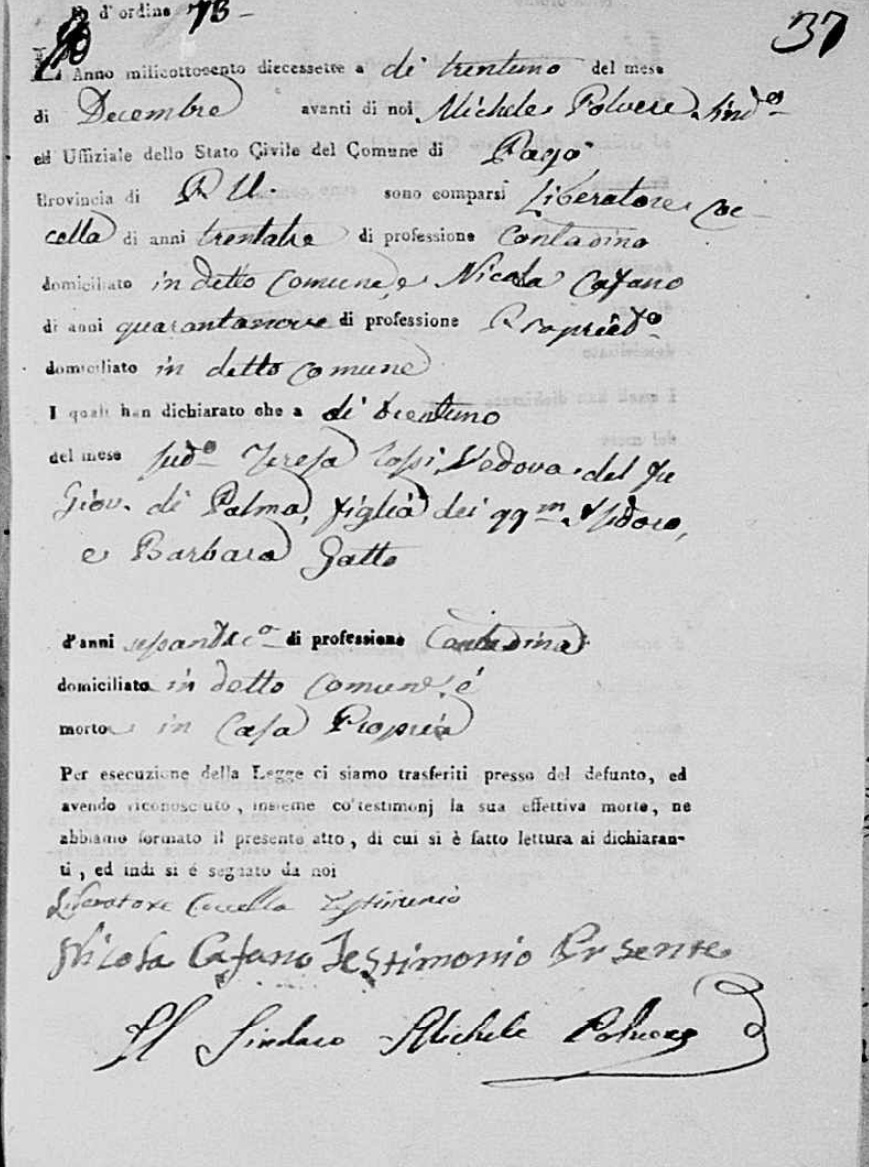 N. d'ordine 73
37
L' Anno milleottocento diecessette a di trentuno del mese
di Decembre avanti di noi Michele Polvere Sind.o
ed Uffiziale dello Stato Civile del Comune di Pago
Provincia di P. U. sono comparsi Liberatore Coc-
cella di anni trentatre di professione Contadino
domiciliato in detto Comune, e Nicola Cafano
di anni quarantanove di professione Propriet.o
domiciliato in detto Comune
I quali han dichiarato che a di trentuno
del mese sud.o Teresa Rossi, Vedova del fu
Giov. di Palma, figlia dei qq.m Isidoro,
e Barbara Gatto
d'anni di professione Contadina
domiciliata in detto Comune, è
morta in Casa Propria
Per esecuzione della Legge ci siamo trasferiti presso del defunto, ed
avendo riconosciuto, insieme co'testimonj la sua effettiva morte, ne
abbiamo formato il presente atto, di cui si è fatto lettura ai dichiaran-
ti, ed indi si é segnato da noi
Liberatore Coccella Testimonio
Nicola Cafano Testimonio Prsente
Il Sindaco Michele Polvere